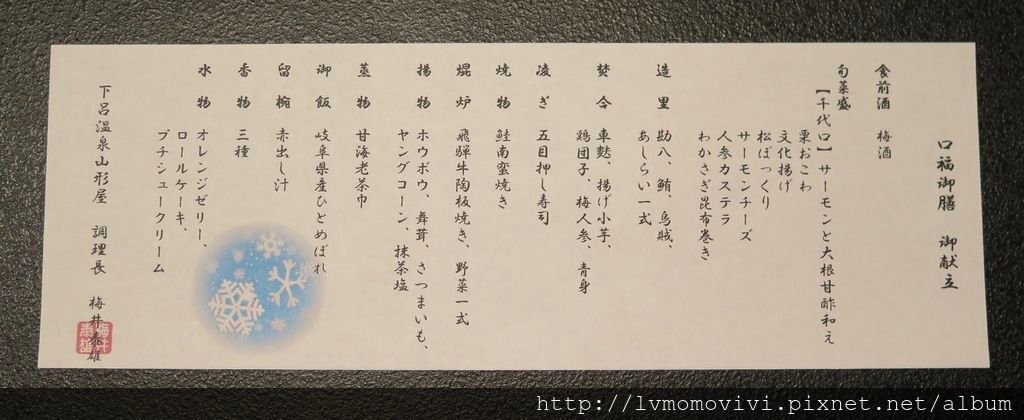 口福御膳 御献立
食前酒 梅酒
旬菜盛
【千代口】サーモンと大根甘酢和え
栗おこわ
文化揚げ
松ぼっくり
サーモンチーズ
人参カステラ
わかさぎ昆布巻き
造里 勘八、鮪、烏賊、
あしらい一式
焚合 車麩、揚げ小芋、
鶏団子、梅人参、青身
凌ぎ 五目押し寿司
焼物 鮭南蛮焼き
焜炉 飛騨牛陶板焼き、野菜一式
揚物 ホウボウ、舞茸、さつまいも、
ヤングコーン、抹茶塩
蒸物 甘海老茶巾
御飯 岐阜県産ひとめぼれ
留椀 赤出し汁
香物 三種
水物 オレンジゼリー、
ロールケーキ、
プチシュークリーム
下呂温泉山形屋 調理長 梅井泰雄
http://lvmomovivi.pixnet.net/album